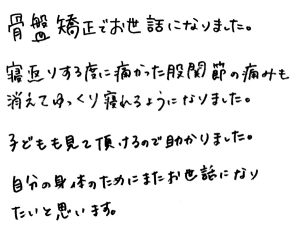 骨盤矯正でお世話になりました。
寝返りする度に痛かった股関節の痛みも
消えてゆっくり寝れるようになりました。
子どもも見て頂けるので助かりました。
自分の身体のためにまたお世話になり
たいと思います。